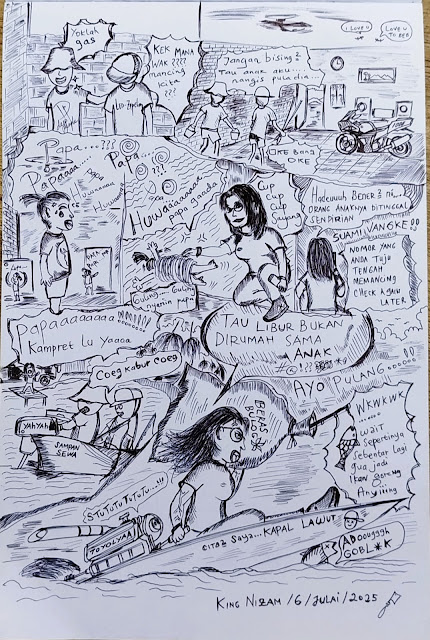 Yoklah
gas
KEK MANA
WAK ????
mancing
kita
???
Jangan bising²
Tau anak aku...
nangis pula dia...
I LOVE U
LOVE U
TO BEB
OKE BANG
OKE
Papa...???
Papaaaa...
Papa...
???
Huwaaaaaaaa
papa ganda
Cup
Cup
Cup
Sayang
Hadeuuuh BENER² ni...
ORANG ANAKNYA DITINGGAL
SENDIRIAN
SUAMI VANGKE !!
NOMOR YANG
ANDA Tuju
TENGAH
MEMANCING
CHECK AGAIN
LATER
Guling Guling
nyariin papa
Papaaaaaaaa
Kampret Lu Yaaaa
TAU LIBUR BUKAN
DIRUMAH SAMA
ANAK
#@!??
AYO PULANG.....!!
Coeg kabur coeg
YAHYAH
SAMPAN
SEWA
BERAS
WKWKWK
.....
wait
Sepertinya
Sebentar Lagi
gua jadi
Ikan goreng
Anjiiing
STUTUTUTUTU...!!!
TOYOLYAA
CITA² SAYA...KAPAL LAWUT
ADoouggh
GOBL*K
KING NIZAM /6/JULAI/2025